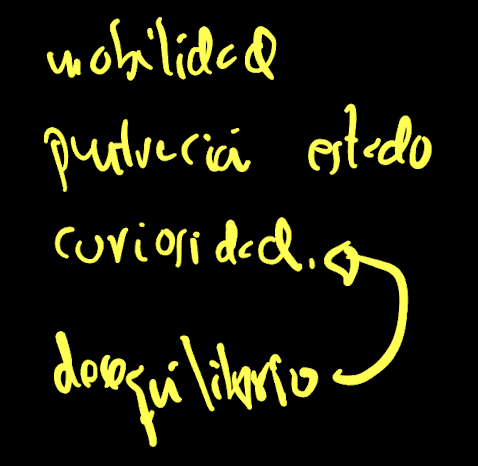 mobilidad
estado
curiosidad.
desequilibrio